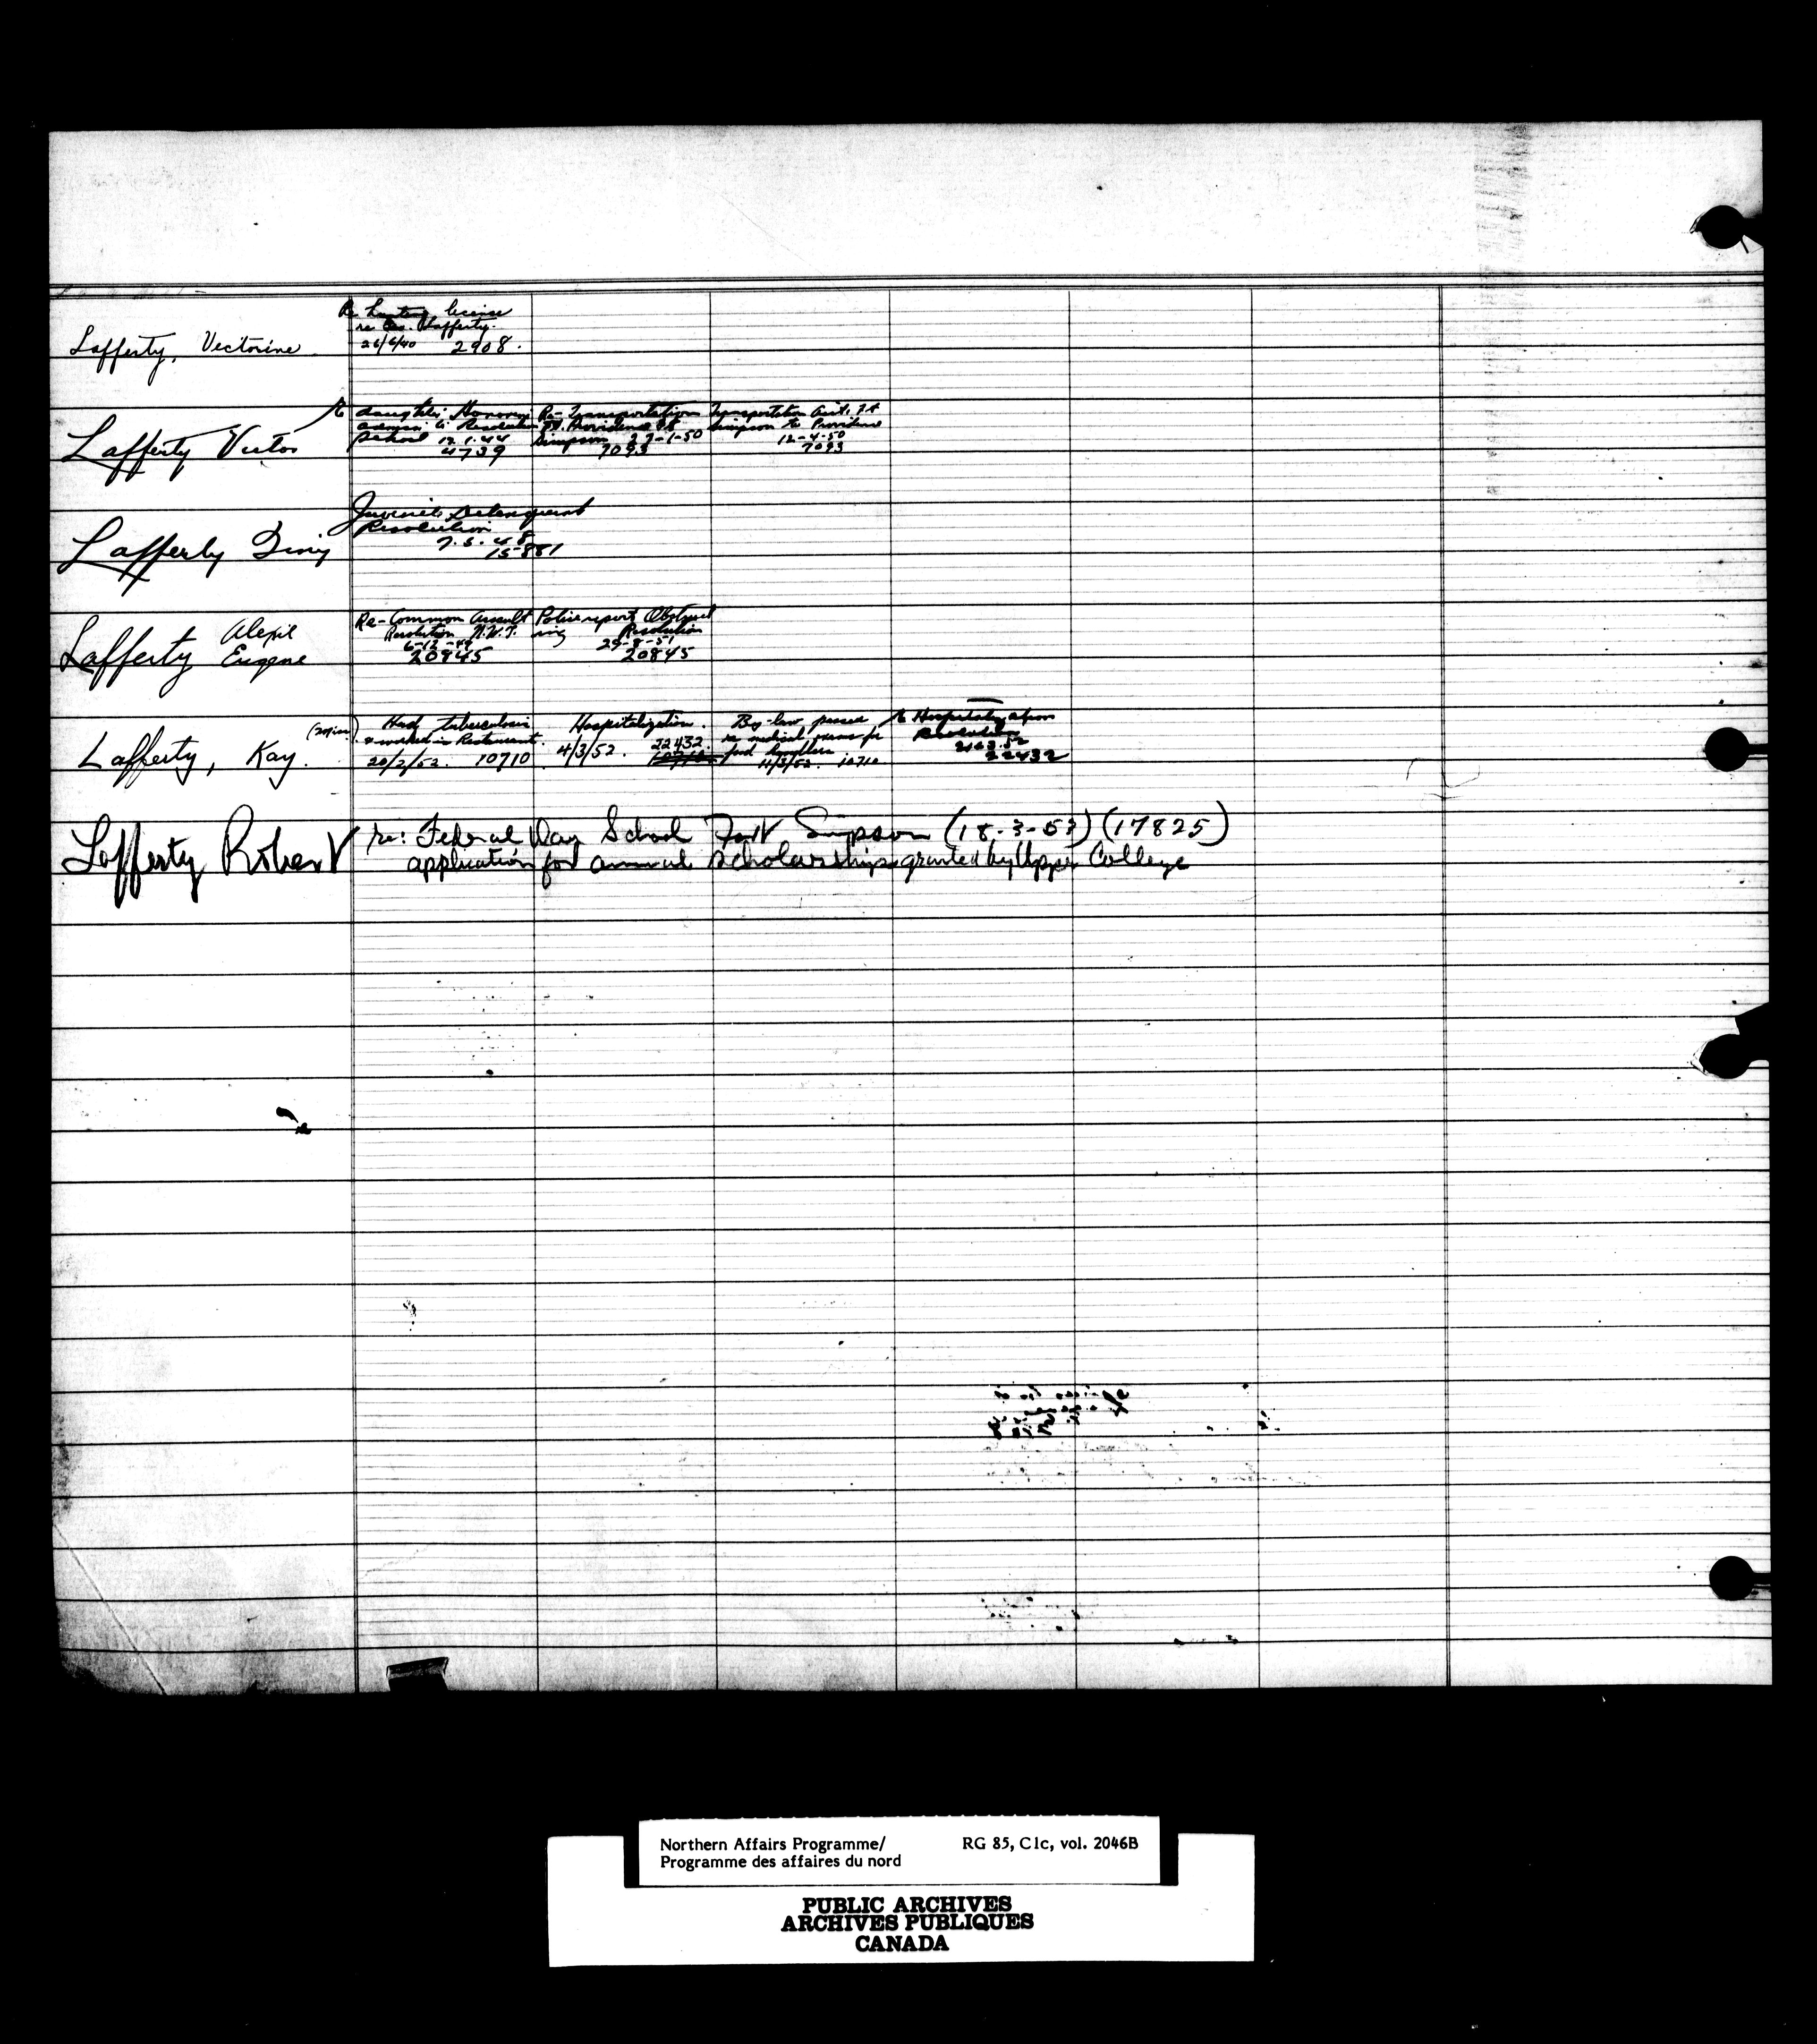 Re Hunting license
re Geo. Lafferty.
Lafferty, Vectorine
26/6/40 2908.
Re daughter Honorary
admission to Resolution
school 12.1.44
4739
Re-Transportation
Ft. Providence Ft
Simpson 27-1-50
7093
Transportation Ft
Simpson to Providence
12-4-50
7093
Lafferty Victor
Juvenile Delinquent
Resolution
7.5.48
15881
Lafferty
Re-Common Assault
Resolution N.W.T.
6-12-49
20845
Police report Obstruct
ing Resolution
29-8-51
20845
Lafferty Alexie
Eugene
Had tuberculosis
& worked in Restaurant.
20/2/52. 10710
Hospitalization.
4/3/52. 22432
10710
By-law passed
re medical exams for
food handlers
11/3/52. 10710
Re Hospitalization
Resolution
22432
Lafferty, Kay.
Lafferty Robert
re: Federal Day School Fort Simpson (18-3-53) (17825)
application for annual scholarships granted by Upper College
Northern Affairs Programme/ RG 85, C1c, vol. 2046B
Programme des affaires du nord
PUBLIC ARCHIVES
ARCHIVES PUBLIQUES
CANADA